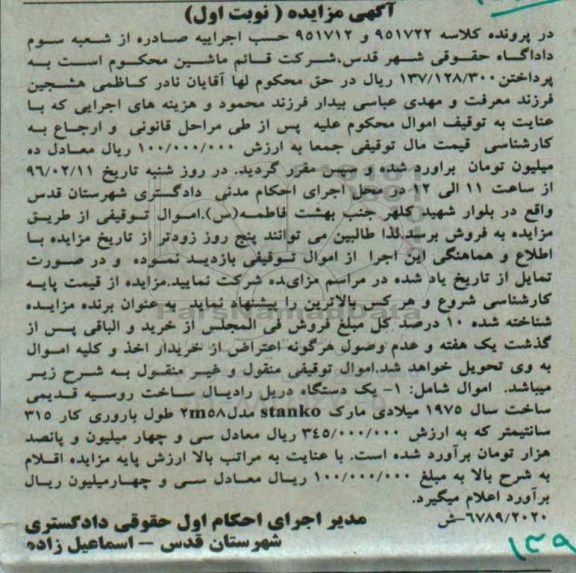 آگهی مزایده ( نوبت اول)
در پرونده کلاسه ۹۵۱۷۲۲ و ۹۵۱۷۱۲ حسب اجراییه صادره از شعبه سوم
دادگاه حقوقی شهر قدس،شرکت قائم ماشین محکوم است به
پرداختن۱۳۷/۱۲۸/۳۰۰ ریال در حق محکوم لها آقایان نادر کاظمی هشجین
فرزند معرفت و مهدی عباسی بیدار فرزند محمود و هزینه های اجرایی که با
عنایت به توقیف اموال محکوم علیه پس از طی مراحل قانونی و ارجاع به
کارشناسی قیمت مال توقیفی جمعا به ارزش ۱۰۰/۰۰۰/۰۰۰ ریال معادل ده
میلیون تومان براورد شده و سپس مقرر گردید. در روز شنبه تاریخ ۹۶/۰۲/۱۱
از ساعت ۱۱ الی ۱۲ در محل اجرای احکام مدنی دادگستری شهرستان قدس
واقع در بلوار شهید کلهر جنب بهشت فاطمه(س).اموال توقیفی از طریق
مزایده به فروش برسد.لذا طالبین می توانند پنج روز زودتر از تاریخ مزایده با
اطلاع و هماهنگی این اجرا از اموال توقیفی بازدید نموده و در صورت
تمایل از تاریخ یاد شده در مراسم مزای‌ده شرکت نمایید.مزایده از قیمت پایه
کارشناسی شروع و هر کس بالاترین را پیشنهاد نماید به عنوان برنده مزایده
شناخته شده ۱۰ درصد کل مبلغ فروش فی المجلس از خرید و الباقی پس از
گذشت یک هفته و عدم وصول هرگونه اعتراض از خریدار اخذ و کلیه اموال
به وی تحویل خواهد شد.اموال توقیفی منقول و غیر منقول به شرح زیر
میباشد. اموال شامل: ۱- یک دستگاه دریل رادیال ساخت روسیه قدیمی
ساخت سال ۱۹۷۵ میلادی مارک stanko مدل۲m۵۸ طول باروری کار ۳۱۵
سانتیمتر که به ارزش ۳۴۵/۰۰۰/۰۰۰ ریال معادل سی و چهار میلیون و پانصد
هزار تومان برآورد شده است. با عنایت به مراتب بالا ارزش پایه مزایده اقلام
به شرح بالا به مبلغ ۱۰۰/۰۰۰/۰۰۰ ریال معادل سی و چهارمیلیون ریال
برآورد اعلام میگیرد.
۶۷۸۹/۲۰۲۰-ش
مدیر اجرای احکام اول حقوقی دادگستری
شهرستان قدس – اسماعیل زاده
ParsNamadData
۱۳۹